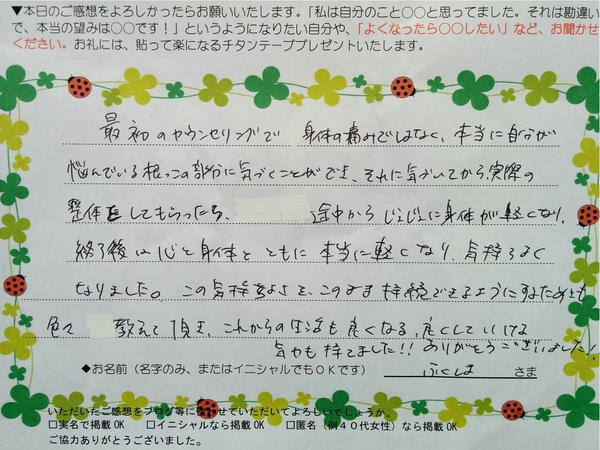 ▼本日のご感想をよろしかったらお願いいたします。「私は自分のこと○○と思ってました。それは勘違い
で、本当の望みは○○です！」というようになりたい自分や、「よくなったら○○したい」など、お聞かせ
ください。お礼には、貼って楽になるチタンテーププレゼントいたします。
最初のカウンセリングで 身体の痛みではなく、本当に自分が
悩んでいる根っこの部分に気づくことができ、それに気づいてから、実際の
整体をしてもらったら、 途中からじょじょに身体が軽くなり、
終了後は心と身体とともに本当に軽くなり、気持ちよく
なりました。この気持ちよさを、このまま持続できるようにするためにも
色々 教えて頂き、これからの生活も良くなる、良くしていける
気がも持てました!! ありがとうございました!
◆お名前（名字のみ、またはイニシャルでもＯＫです） ふくしま さま
いただいたご感想をブログ等に使わせていただいてよろしいでしょうか。
□実名で掲載 OK □イニシャルなら掲載 OK □匿名（例４０代女性）なら掲載 OK
ご協力ありがとうございました。